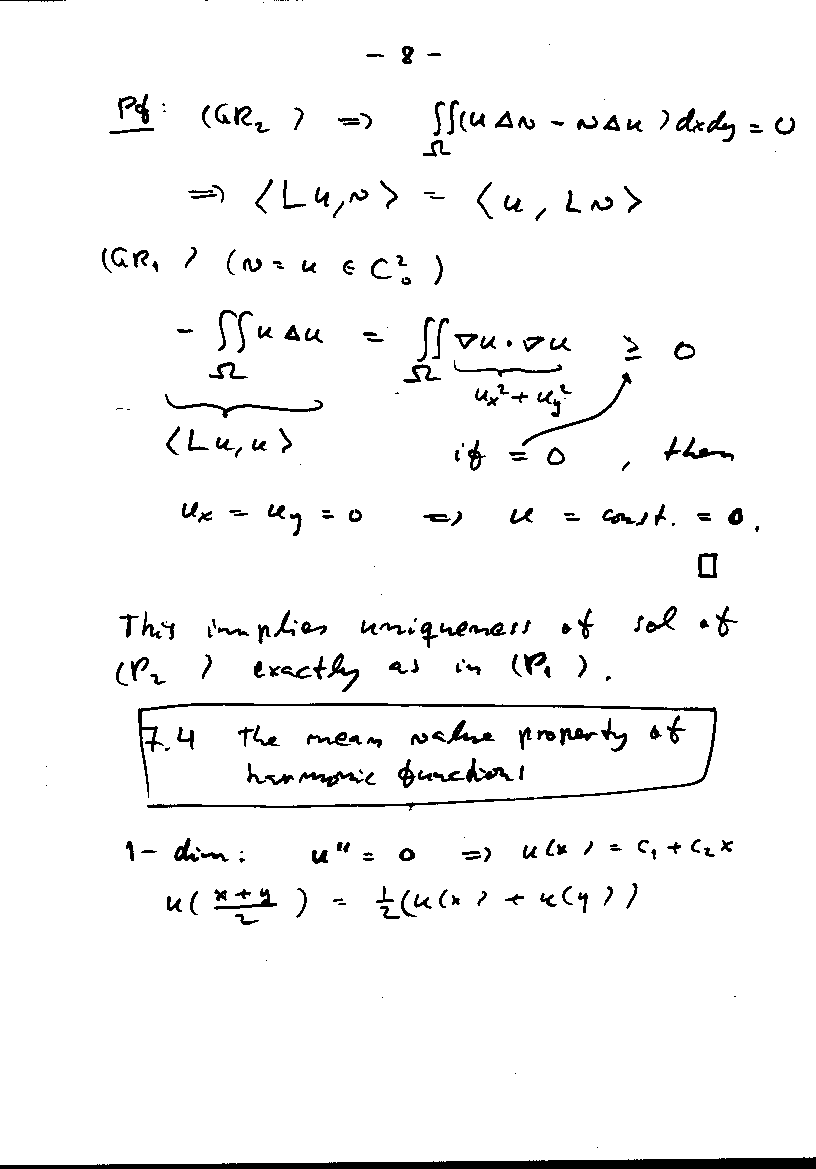 - 8 -
Pf: (GR₂) ⇒ ∬_Ω (u Δv - v Δu) dxdy = 0
⇒ ⟨Lu, v⟩ = ⟨u, Lv⟩
(GR₁) (v = u ∈ C²₀)
- ∬_Ω u Δu = ∬_Ω ∇u · ∇u ≥ 0
uₓ² + u_y²
⟨Lu, u⟩ if = 0, then
uₓ = u_y = 0 ⇒ u = const. = 0.
□
This implies uniqueness of sol of
(P₂) exactly as in (P₁).
7.4 The mean value property of
harmonic functions
1-dim: u'' = 0 ⇒ u(x) = c₁ + c₂x
u((x+y)/2) = ½(u(x) + u(y))